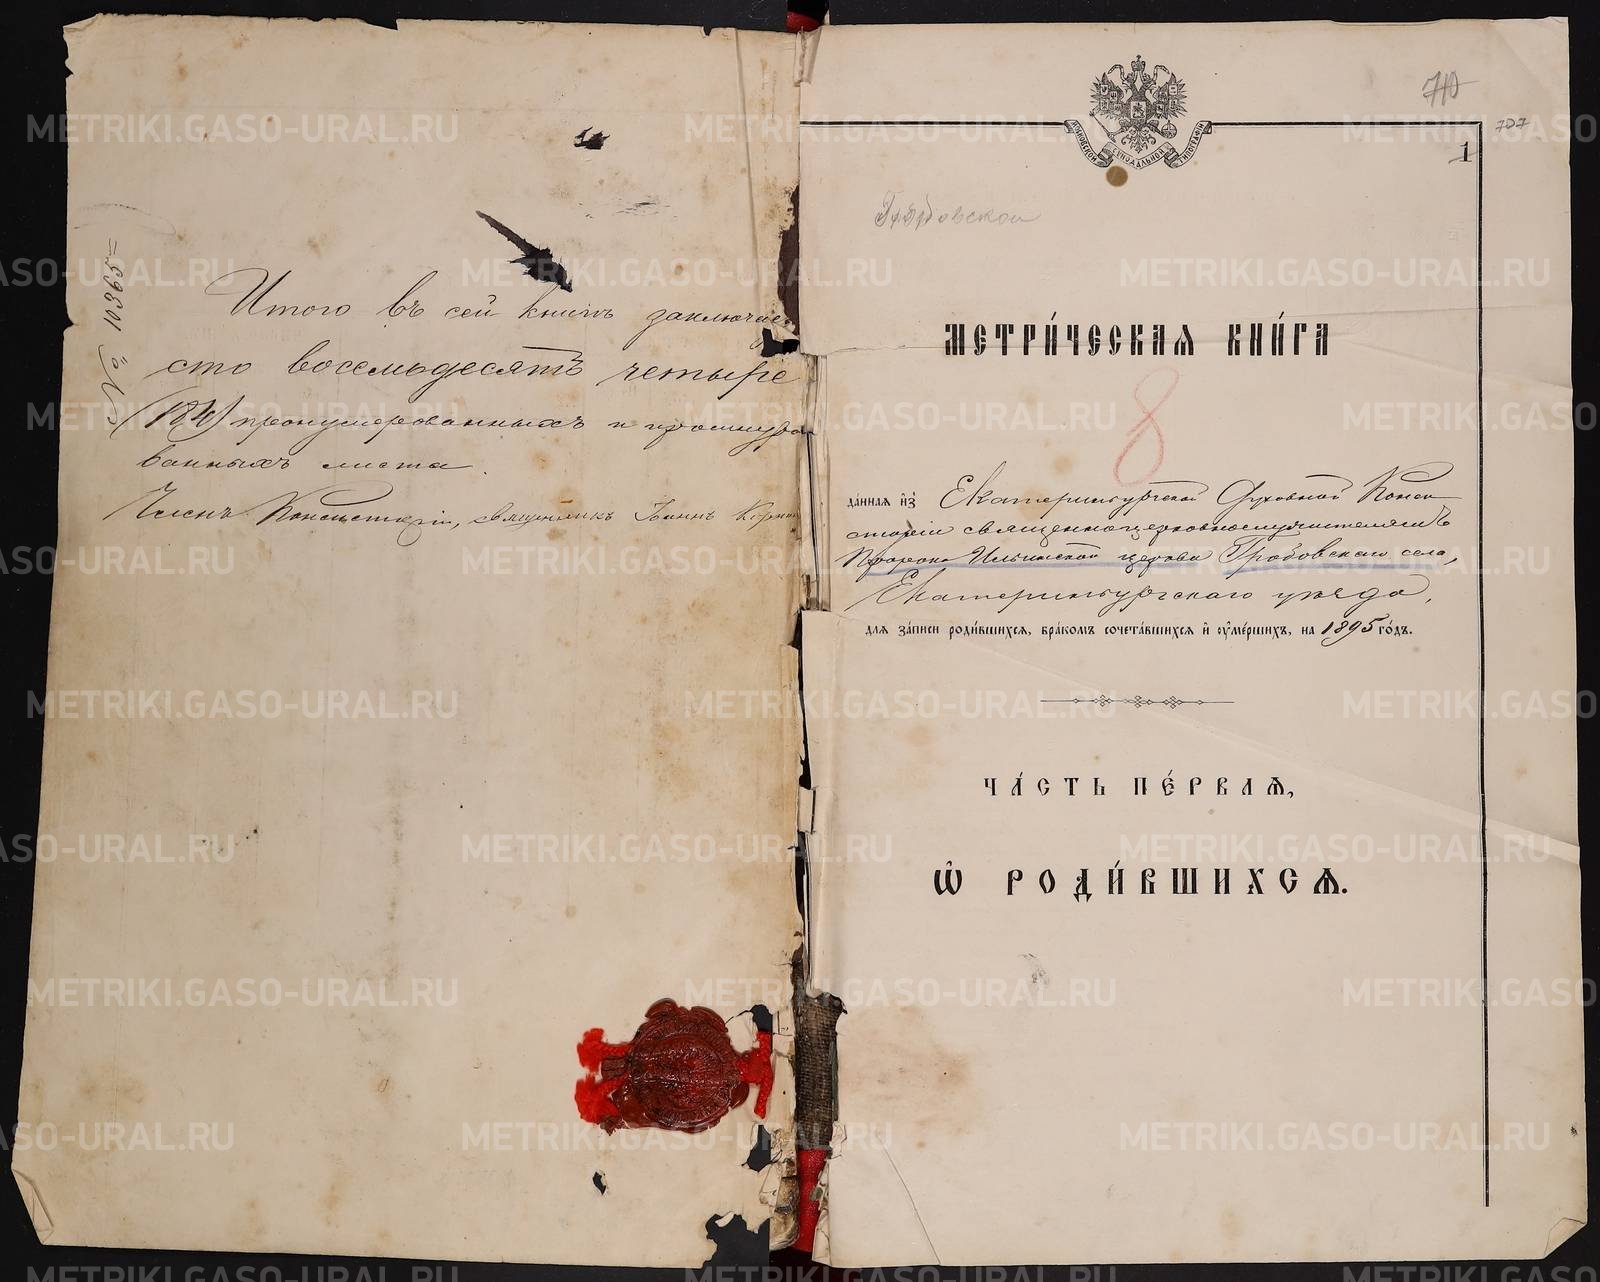 № 10365=
Итого въ сей книгѣ заключае
сто восемьдесятъ четыре
(184) пронумерованныхъ и прошнуро
ванныхъ листа.
Членъ Консисторіи, священникъ Іоаннъ
МОСКОВСКОЙ СѴНОДАЛЬНОЙ ТИПОГРАФІИ
710
707
1
Гробовской
МЕТРИ́ЧЕСКАЯ КНИ́ГА
8
да́нная из̾ Екатеринбургской Духовной Конси
сторіи священноцерковнослужителямъ
Пророко Ильинской церкви Гробовскаго села,
Екатеринбургскаго уѣзда,
для за́писи роди́вшихся, бра́комъ сочета́вшихся и҆ ᲂу҆ме́ршихъ, на 1895 го́дъ.
ЧА́СТЬ ПЕ́РВАЯ,
Ѡ҆ РОДИ́ВШИХСЯ.
METRIKI.GASO-URAL.RU